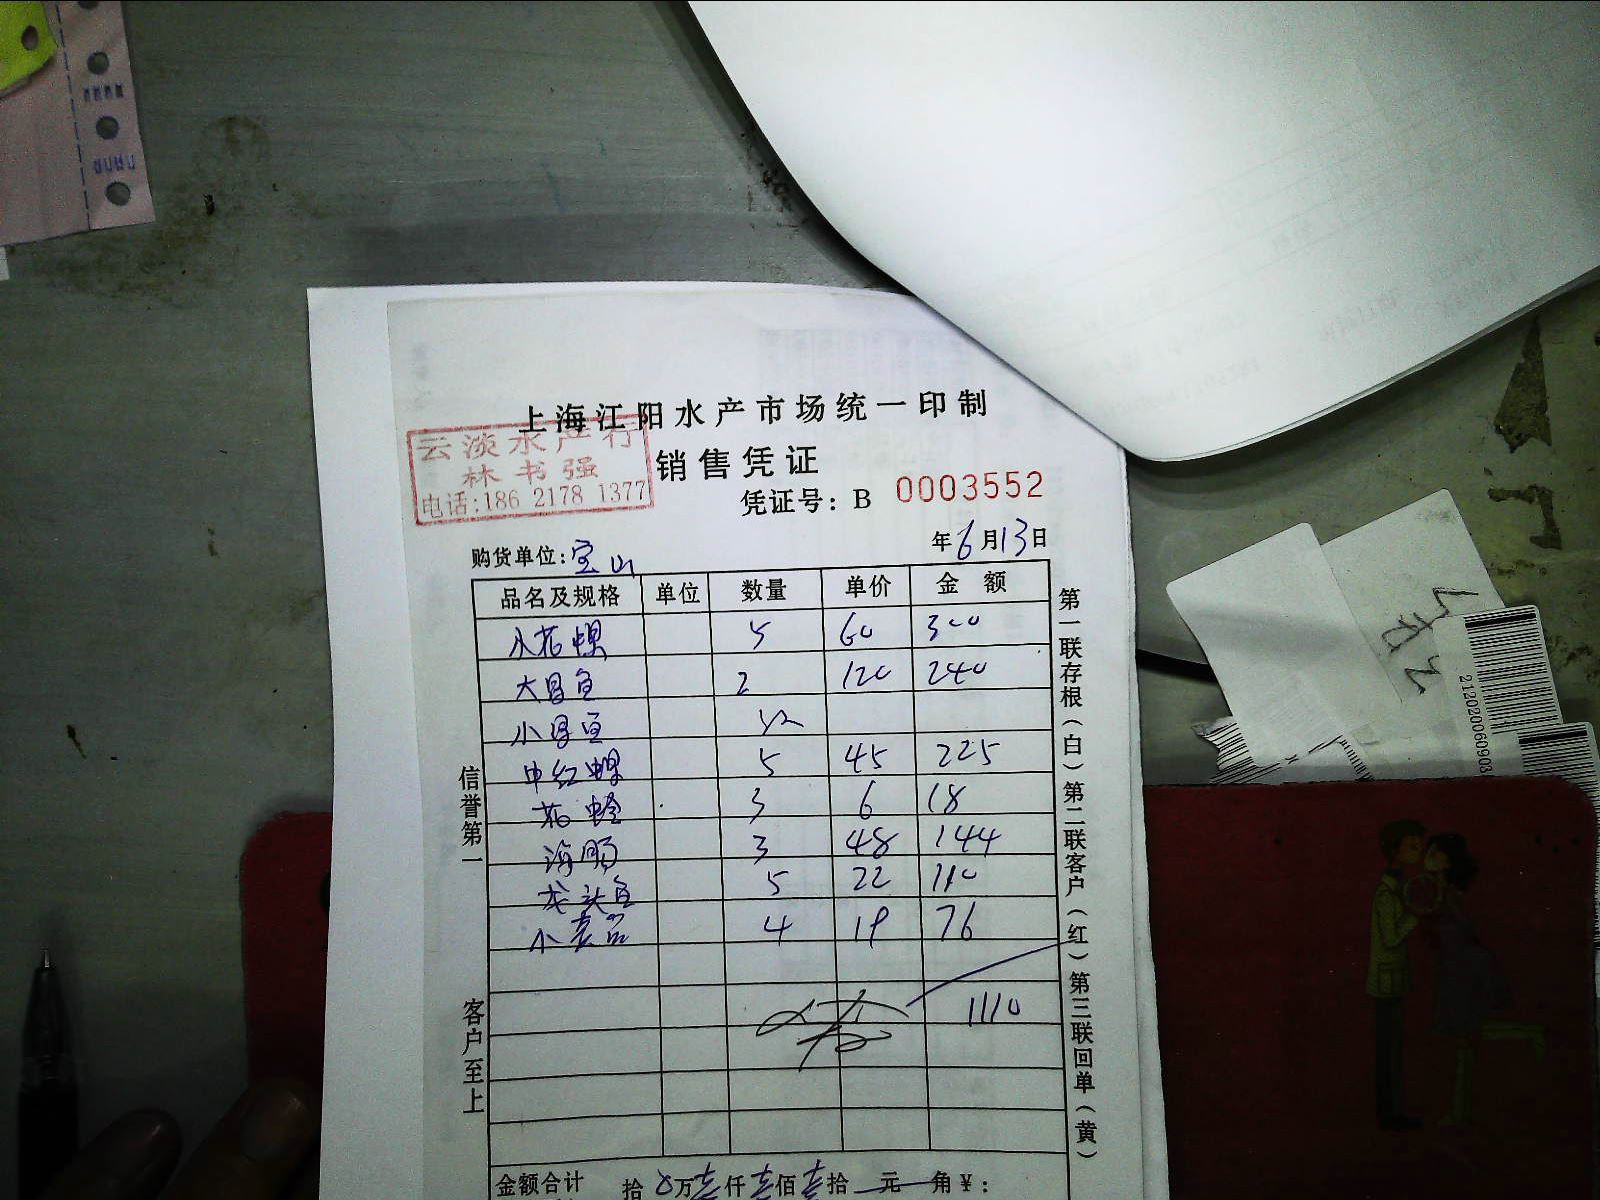 上海江阳水产市场统一印制
云淡水产行
林书强
电话:186 2178 1377
销售凭证
凭证号: B 0003552
购货单位: 宝山 年6月13日
品名及规格 单位 数量 单价 金额
5 60 300
大昌鱼 2 120 240
小昌鱼
中红螺 5 45 225
花蛤 3 6 18
海肠 3 48 144
龙头鱼 5 22 110
小 4 19 76
1110
信誉第一
客户至上
第一联存根(白)第二联客户(红)第三联回单(黄)
金额合计 拾 万壹仟壹佰壹拾 元 角 ¥:
21202060903